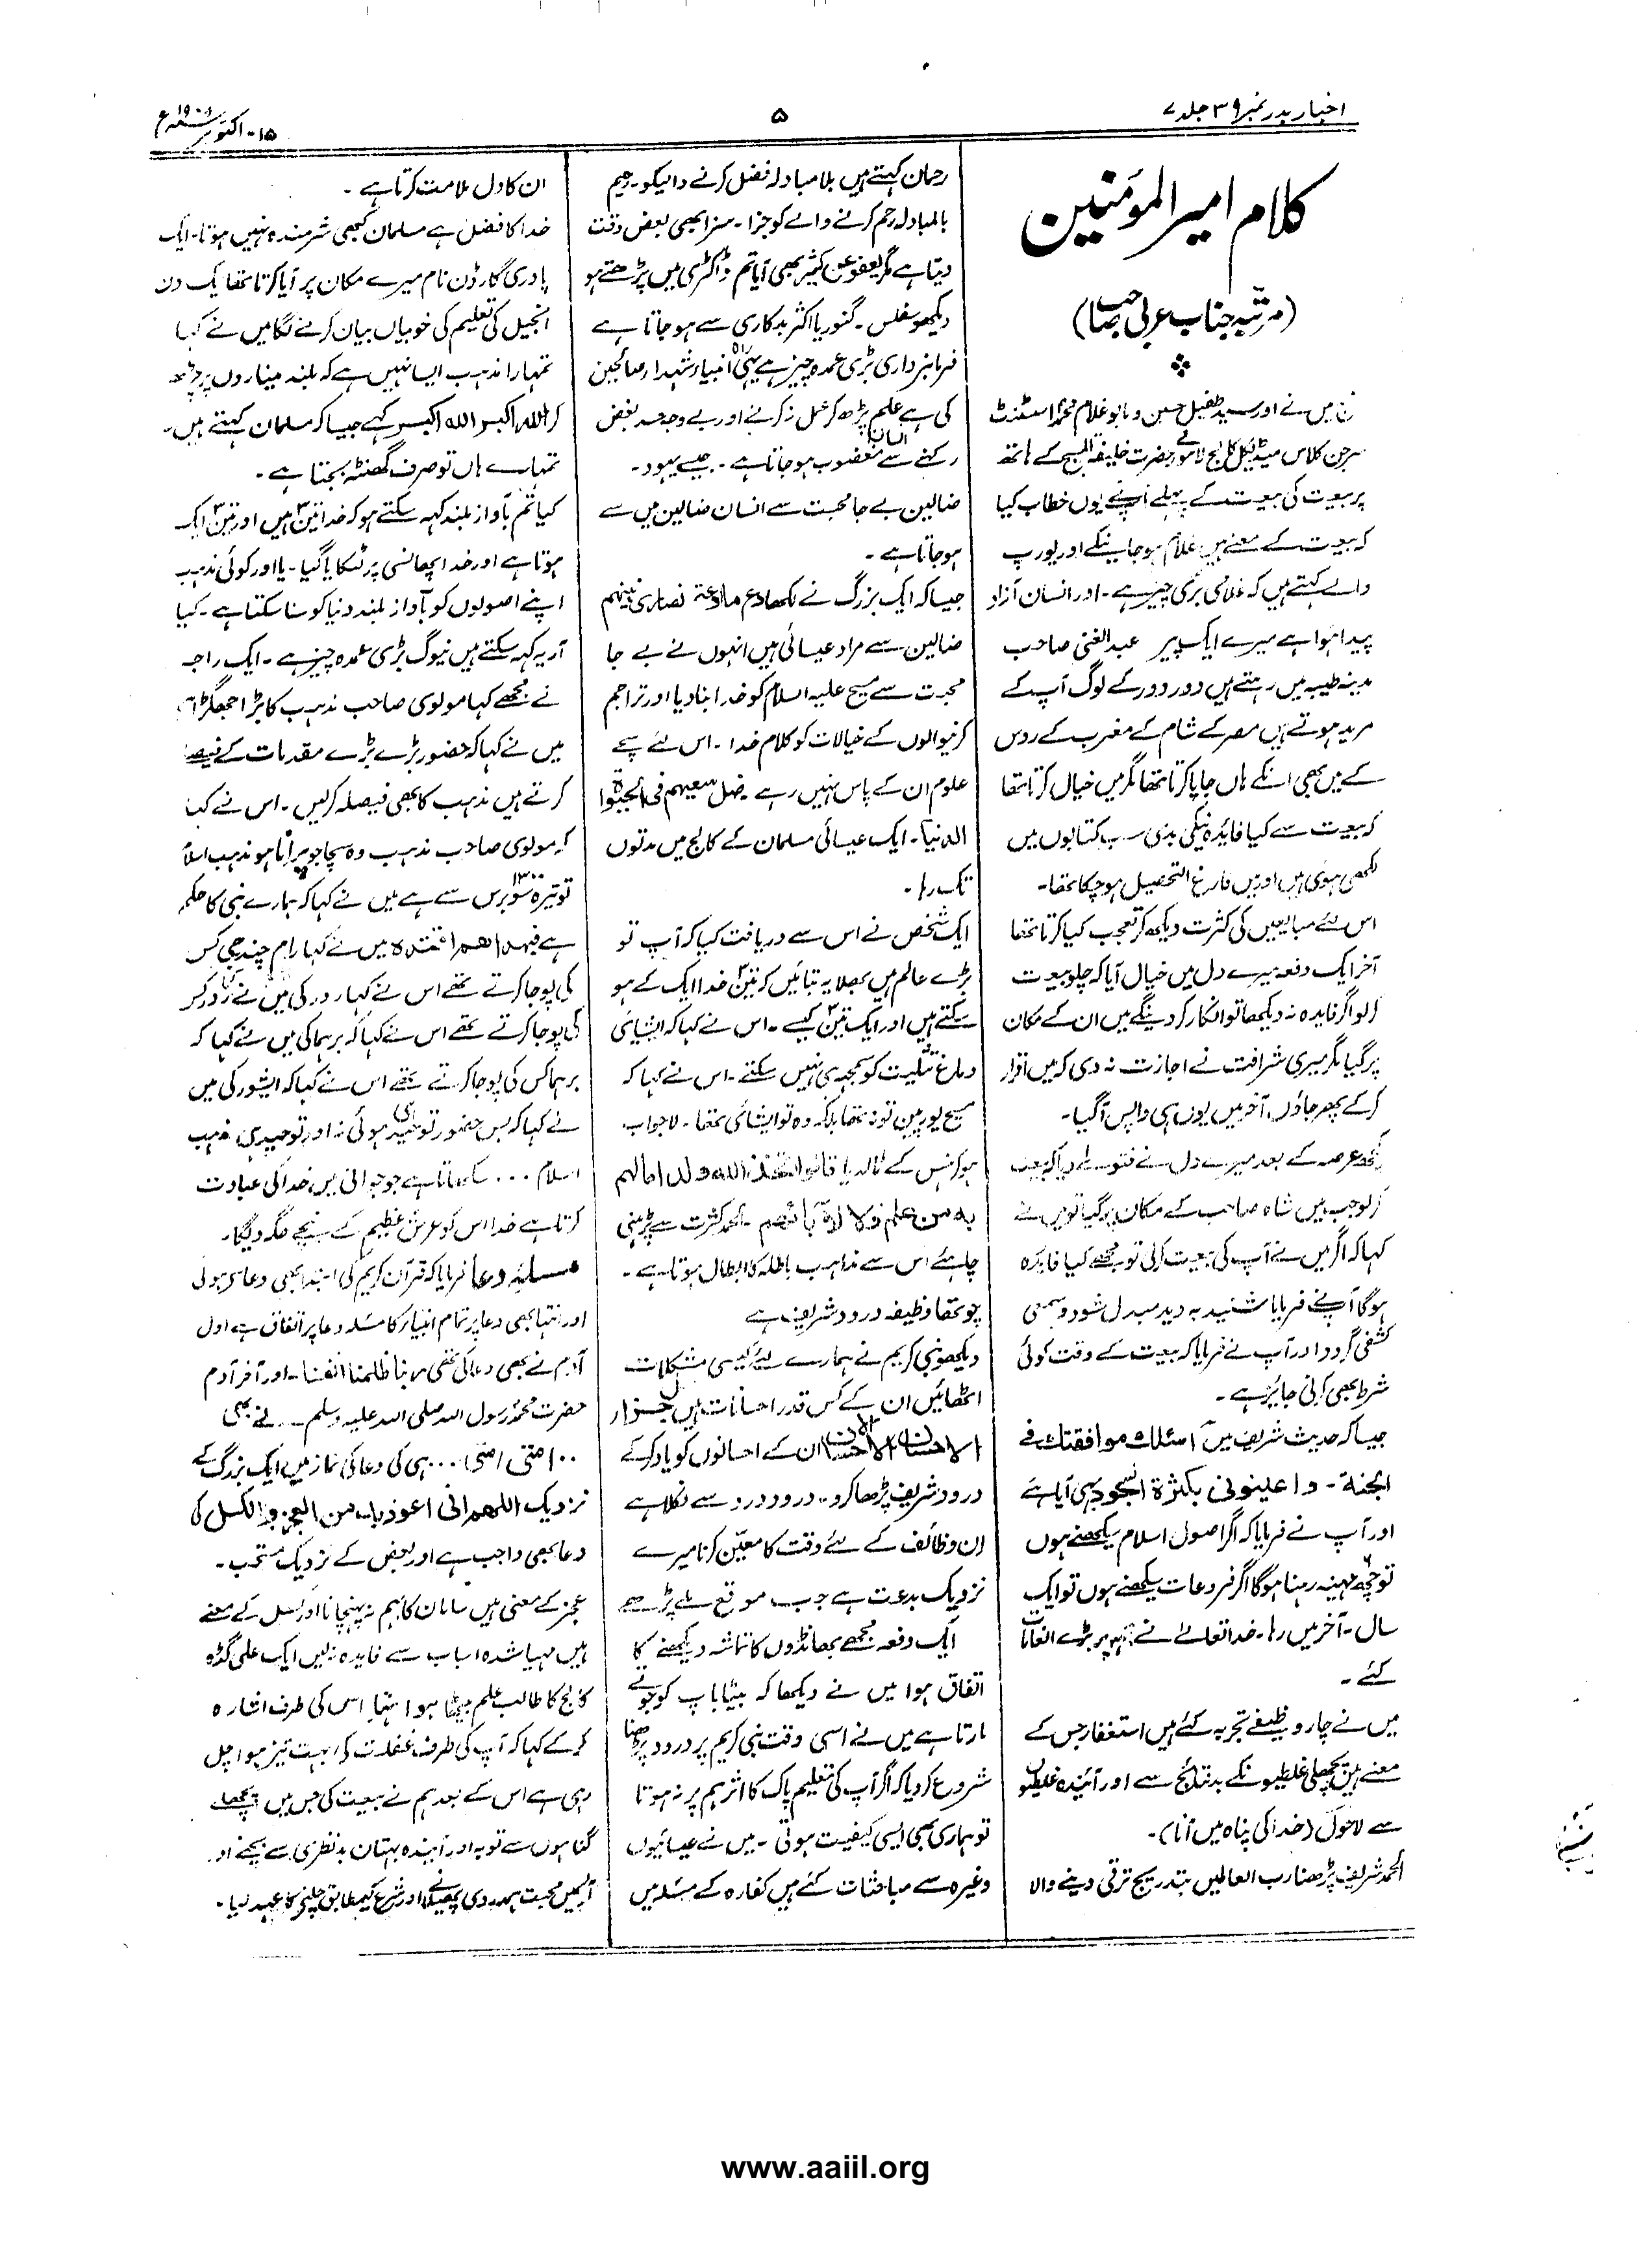 اخبار بدر نمبر ۳۹ جلد ۷
۵
۱۵- اکتوبر ۱۹۰۸ء
کلام امیر المؤمنین
(مرتبہ جناب عربی صاحب)
میں نے اور سید طفیل حسین و بابو غلام محمد اسسٹنٹ
سرجن کلاس میڈیکل کالج لاہور نے حضرت خلیفۃ المسیح کے ہاتھ
پر بیعت کی بیعت کے پہلے آپنے یوں خطاب کیا
کہ بیعت کے معنے ہیں غلام ہو جاینگے اور یورپ
والے کہتے ہیں کہ غلامی بری چیز ہے۔ اور انسان آزاد
پیدا ہوا ہے میرے ایک پیر عبد الغنی صاحب
مدینہ طیبہ میں رہتے ہیں دور دور کے لوگ آپ کے
مرید ہوتے ہیں مصر کے شام کے مغرب کے روس
کے میں بھی انکے ہاں جایا کرتا تھا مگر میں خیال کرتا تھا
کہ بیعت سے کیا فائدہ نیکی بدی سب کتابوں میں
لکھی ہوئی ہیں اور میں فارغ التحصیل ہو چکا تھا۔
اس لئے مبایعین کی کثرت دیکھ کر تعجب کیا کرتا تھا
آخر ایک دفعہ میرے دل میں خیال آیا کہ چلو بیعت
کرلو اگر فایدہ نہ دیکھا تو انکار کر دینگے میں ان کے مکان
پر گیا مگر میری شرافت نے اجازت نہ دی کہ میں اقرار
کرکے پھر جاؤں۔ آخر میں یوں ہی واپس آگیا۔
کچھ عرصہ کے بعد میرے دل نے فتوےٰ دیا کہ بیعت
کرلو جب میں شاہ صاحب کے مکان پر گیا تو میں نے
کہا کہ اگر میں نے آپ کی بیعت کرلی تو مجھے کیا فایدہ
ہوگا آپنے فرمایا شنید بہ دید مبدل شود و سمعی
کشفی گردد اور آپ نے فرمایا کہ بیعت کے وقت کوئی
شرط بھی کرنی جایز ہے۔
جیسا کہ حدیث شریف میں آسئلك موافقتك فے
الجنة - و اعینونی بکثرة السجود بھی آیا ہے
اور آپ نے فرمایا کہ اگر اصول اسلام سیکھنے ہوں
تو چھ مہینہ رہنا ہوگا اگر فردعات سیکھنے ہوں تو ایک
سال۔ آخر میں رہا۔ خدا تعالےٰ نے مجھ پر بڑے انعامات
کئے۔
میں نے چار وظیفے تجربہ کئے ہیں استغفار جس کے
معنے ہیں پچھلی غلطیونکے بد نتائج سے اور آئندہ غلطیوں
سے لاحول (خدا کی پناہ میں آنا)۔
الحمد شریف پڑھنا رب العالمین بتدریج ترقی دینے والا
رحمان کہتے ہیں بلا مبادلہ فضل کرنے والیکو۔ رحیم
بالمبادلہ رحم کرنے والے کو جزا۔ سزا بھی بعض وقت
دیتا ہے مگر یعفو عن کثیر بھی آیا تم ڈاکٹری میں پڑھتے ہو
دیکھو سفلس۔ گنوریا اکثر بدکاری سے ہو جاتا ہے
فرمانبرداری بڑی عمدہ چیز ہے یہی راہ انبیاء شہداء صالحین
کی ہے علم پڑھ کر عمل نہ کرنے اور بے وجہ بغض
رکھنے سے انسان مغضوب ہو جاتا ہے۔ جیسے یہود۔
ضالین بے جا محبت سے انسان ضالین میں سے
ہو جاتا ہے۔
جیسا کہ ایک بزرگ نے لکھا دع مادعتہ نصاری نبیھم
ضالین سے مراد عیسائی ہیں انہوں نے بے جا
محبت سے مسیح علیہ السلام کو خدا بنا دیا اور تراجم
کرنیوالوں کے خیالات کو کلام خدا۔ اس لئے سچے
علوم ان کے پاس نہیں رہے۔ ضل سعیهم فی الحیٰوة
الدنیا۔ ایک عیسائی مسلمان کے کالج میں مدتوں
تک رہا۔
ایک شخص نے اس سے دریافت کیا کہ آپ تو
بڑے عالم ہیں بھلا یہ بتائیں کہ تین ۳ خدا ایک کے ہو
سکتے ہیں اور ایک تین ۳ کیسے۔ اس نے کہا کہ ایشیائی
دماغ تثلیت کو سمجھ ہی نہیں سکتے۔ اس نے کہا کہ
مسیح یورپین تو نہ تھا بلکہ وہ تو ایشیائی تھا۔ لاجواب
ہو کر ہنس کے ٹالدیا قالوا اتخذ الله ولدا مالهم
به من علم ولا لآبائهم۔ الحمد کثرت سے پڑہنی
چاہئے اس سے مذاہب باطلہ کا ابطال ہوتا ہے۔
چوتھا وظیفہ درود شریف ہے
دیکھو نبی کریم نے ہمارے لئے کیسی مشکلات
اٹھائیں ان کے کس قدر احسانات ہیں ھل جزاء
الاحسان الا الاحسان ان کے احسانوں کو یاد کر کے
درود شریف پڑھا کرو۔ درود درد سے نکلا ہے
ان وظائف کے لئے وقت کا معیّن کرنا میرے
نزدیک بدعت ہے جب موقع ملے پڑھے
ایک دفعہ مجھے بھانڈوں کا تماشہ دیکھنے کا
اتفاق ہوا میں نے دیکھا کہ بیٹا باپ کو جوتے
مارتا ہے میں نے اسی وقت نبی کریم پر درود پڑھنا
شروع کر دیا کہ اگر آپ کی تعلیم پاک کا اثر ہم پر نہ ہوتا
تو ہماری بھی ایسی کیفیت ہوتی۔ میں نے عیسائیوں
وغیرہ سے مباحثات کئے ہیں کفارہ کے مسئلہ میں
ان کا دل ملامت کرتا ہے۔
خدا کا فضل ہے مسلمان کبھی شرمندہ نہیں ہوتا۔ ایک
پادری گارڈن نام میرے مکان پر آیا کرتا تھا ایک دن
انجیل کی تعلیم کی خوبیاں بیان کرنے لگا میں نے کہا
تمہارا مذہب ایسا نہیں ہے کہ بلند میناروں پر چڑھ
کر الله اکبر الله اکبر کہے جیسا کہ مسلمان کہتے ہیں۔
تمہارے ہاں تو صرف گھنٹہ بجتا ہے۔
کیا تم بآواز بلند کہہ سکتے ہو کہ خدا تین ۳ ہیں اور تین ۳ ایک
ہوتا ہے اور خدا پھانسی پر لٹکایا گیا۔ یا اور کوئی مذہب
اپنے اصولوں کو بآواز بلند دنیا کو سنا سکتا ہے۔ کیا
آریہ کہہ سکتے ہیں نیوگ بڑی عمدہ چیز ہے۔ ایک راجہ
نے مجھے کہا مولوی صاحب مذہب کا بڑا جھگڑا ہے
میں نے کہا کہ حضور بڑے بڑے مقدمات کے فیصلہ
کرتے ہیں مذہب کا بھی فیصلہ کرلیں۔ اس نے کہا
کہ مولوی صاحب مذہب وہ سچا جو پرانا ہو مذہب اسلام
تو تیرہ سو ۱۳۰۰ برس سے ہے میں نے کہا کہ ہمارے نبی کا حکم
ہے فبهداهم اقتده میں نے کہا رام چندر جی کس
کی پوجا کرتے تھے اس نے کہا ردر کی میں نے کہا ردر کس
کی پوجا کرتے تھے اس نے کہا کہ برہما کی میں نے کہا کہ
برہما کس کی پوجا کرتے تھے اس نے کہا کہ ایشور کی میں
نے کہا کہ بس حضور توحید ہی ہوئی نہ اور توحید ہی مذہب
اسلام ... سکھاتا ہے جو جوانی میں خدا کی عبادت
کرتا ہے خدا اس کو عرش عظیم کے نیچے جگہ دیگا۔
مسئلہ دعا فرمایا کہ قرآن کریم کی ابتدا بھی دعا سے ہوئی
اور انتہا بھی دعا پر تمام انبیاء کا مسئلہ دعا پر اتفاق ہے اول
آدم نے بھی دعا کی تھی ربنا ظلمنا انفسنا۔ اور آخر آدم
حضرت محمد رسول اللہ صلی اللہ علیہ وسلم ... نے بھی
... امتی امتی ... ہی کی دعا کی نماز میں ایک بزرگ کے
نزدیک اللهم انی اعوذ بك من العجز و الکسل کی
دعا بھی واجب ہے اور بعض کے نزدیک مستحب۔
عجز کے معنی ہیں سامان کا بہم نہ پہنچانا اور کسل کے معنے
ہیں مہیا شدہ اسباب سے فایدہ نہ لیں ایک علی گڈہ
کالج کا طالب علم بیٹھا ہوا تھا اس کی طرف اشارہ
کر کے کہا کہ آپ کی طرف غفلت کی بہت تیز ہوا چل
رہی ہے اس کے بعد ہم نے بیعت کی جس میں پچھلے
گناہوں سے توبہ اور آیندہ بہتان بدنظری سے بچنے اور
آپسمیں محبت ہمدردی پھیلانے اور شرع کیمطابق چلنے کا عہد لیا۔
www.aaiil.org